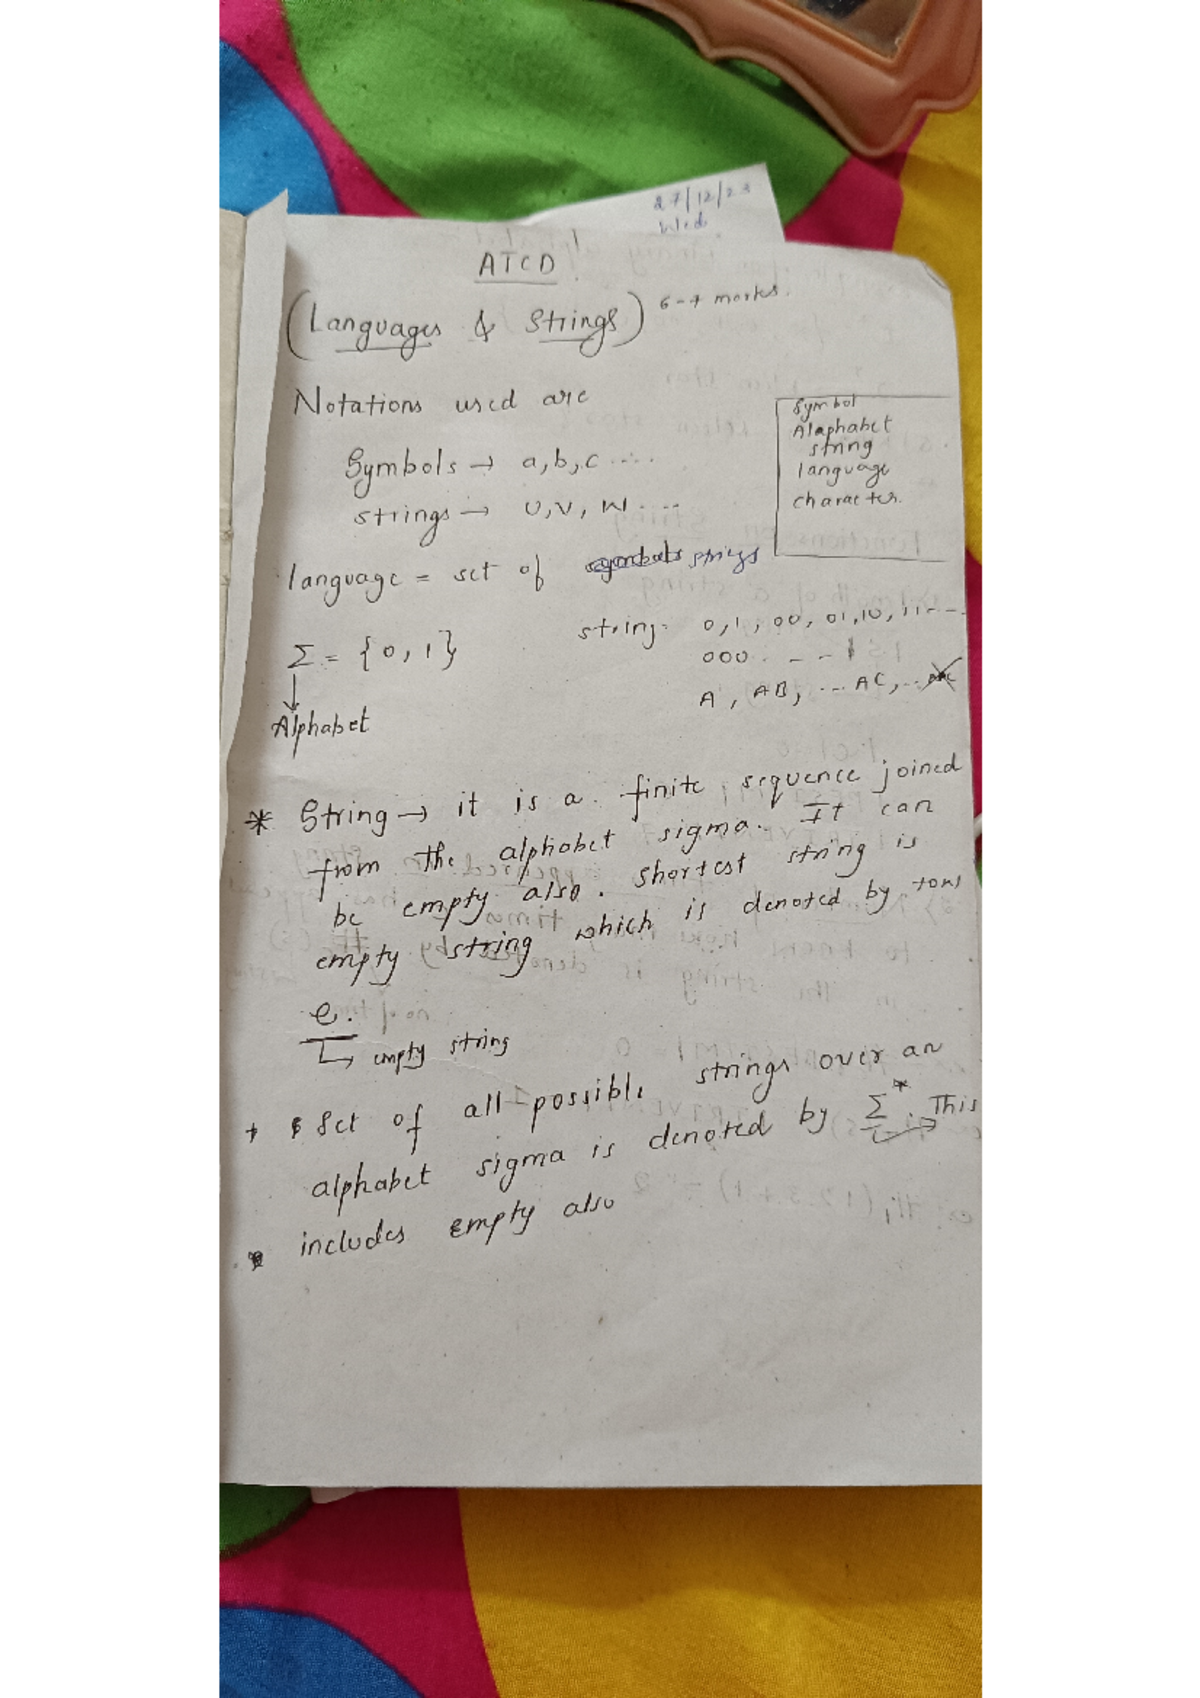 27/12/23
Wed.
ATCD
(Languages & Strings) 6-7 marks.
Notations used are
Symbols → a,b,c ....
strings → U,V, W ....
Symbol
Alaphabet
string
language
character.
language = set of symbols strings
Σ = {0,1}
Alphabet
string: 0,1, 00, 01,10, 11---
000. - - -
A, AB, ... AC, ...
* String → it is a finite sequence joined
from the alphabet sigma. It can
be empty also. shortest string is
empty string which is denoted by
e.
↳ empty string
+ Set of all possible strings over an
alphabet sigma is denoted by Σ*. This
includes empty also